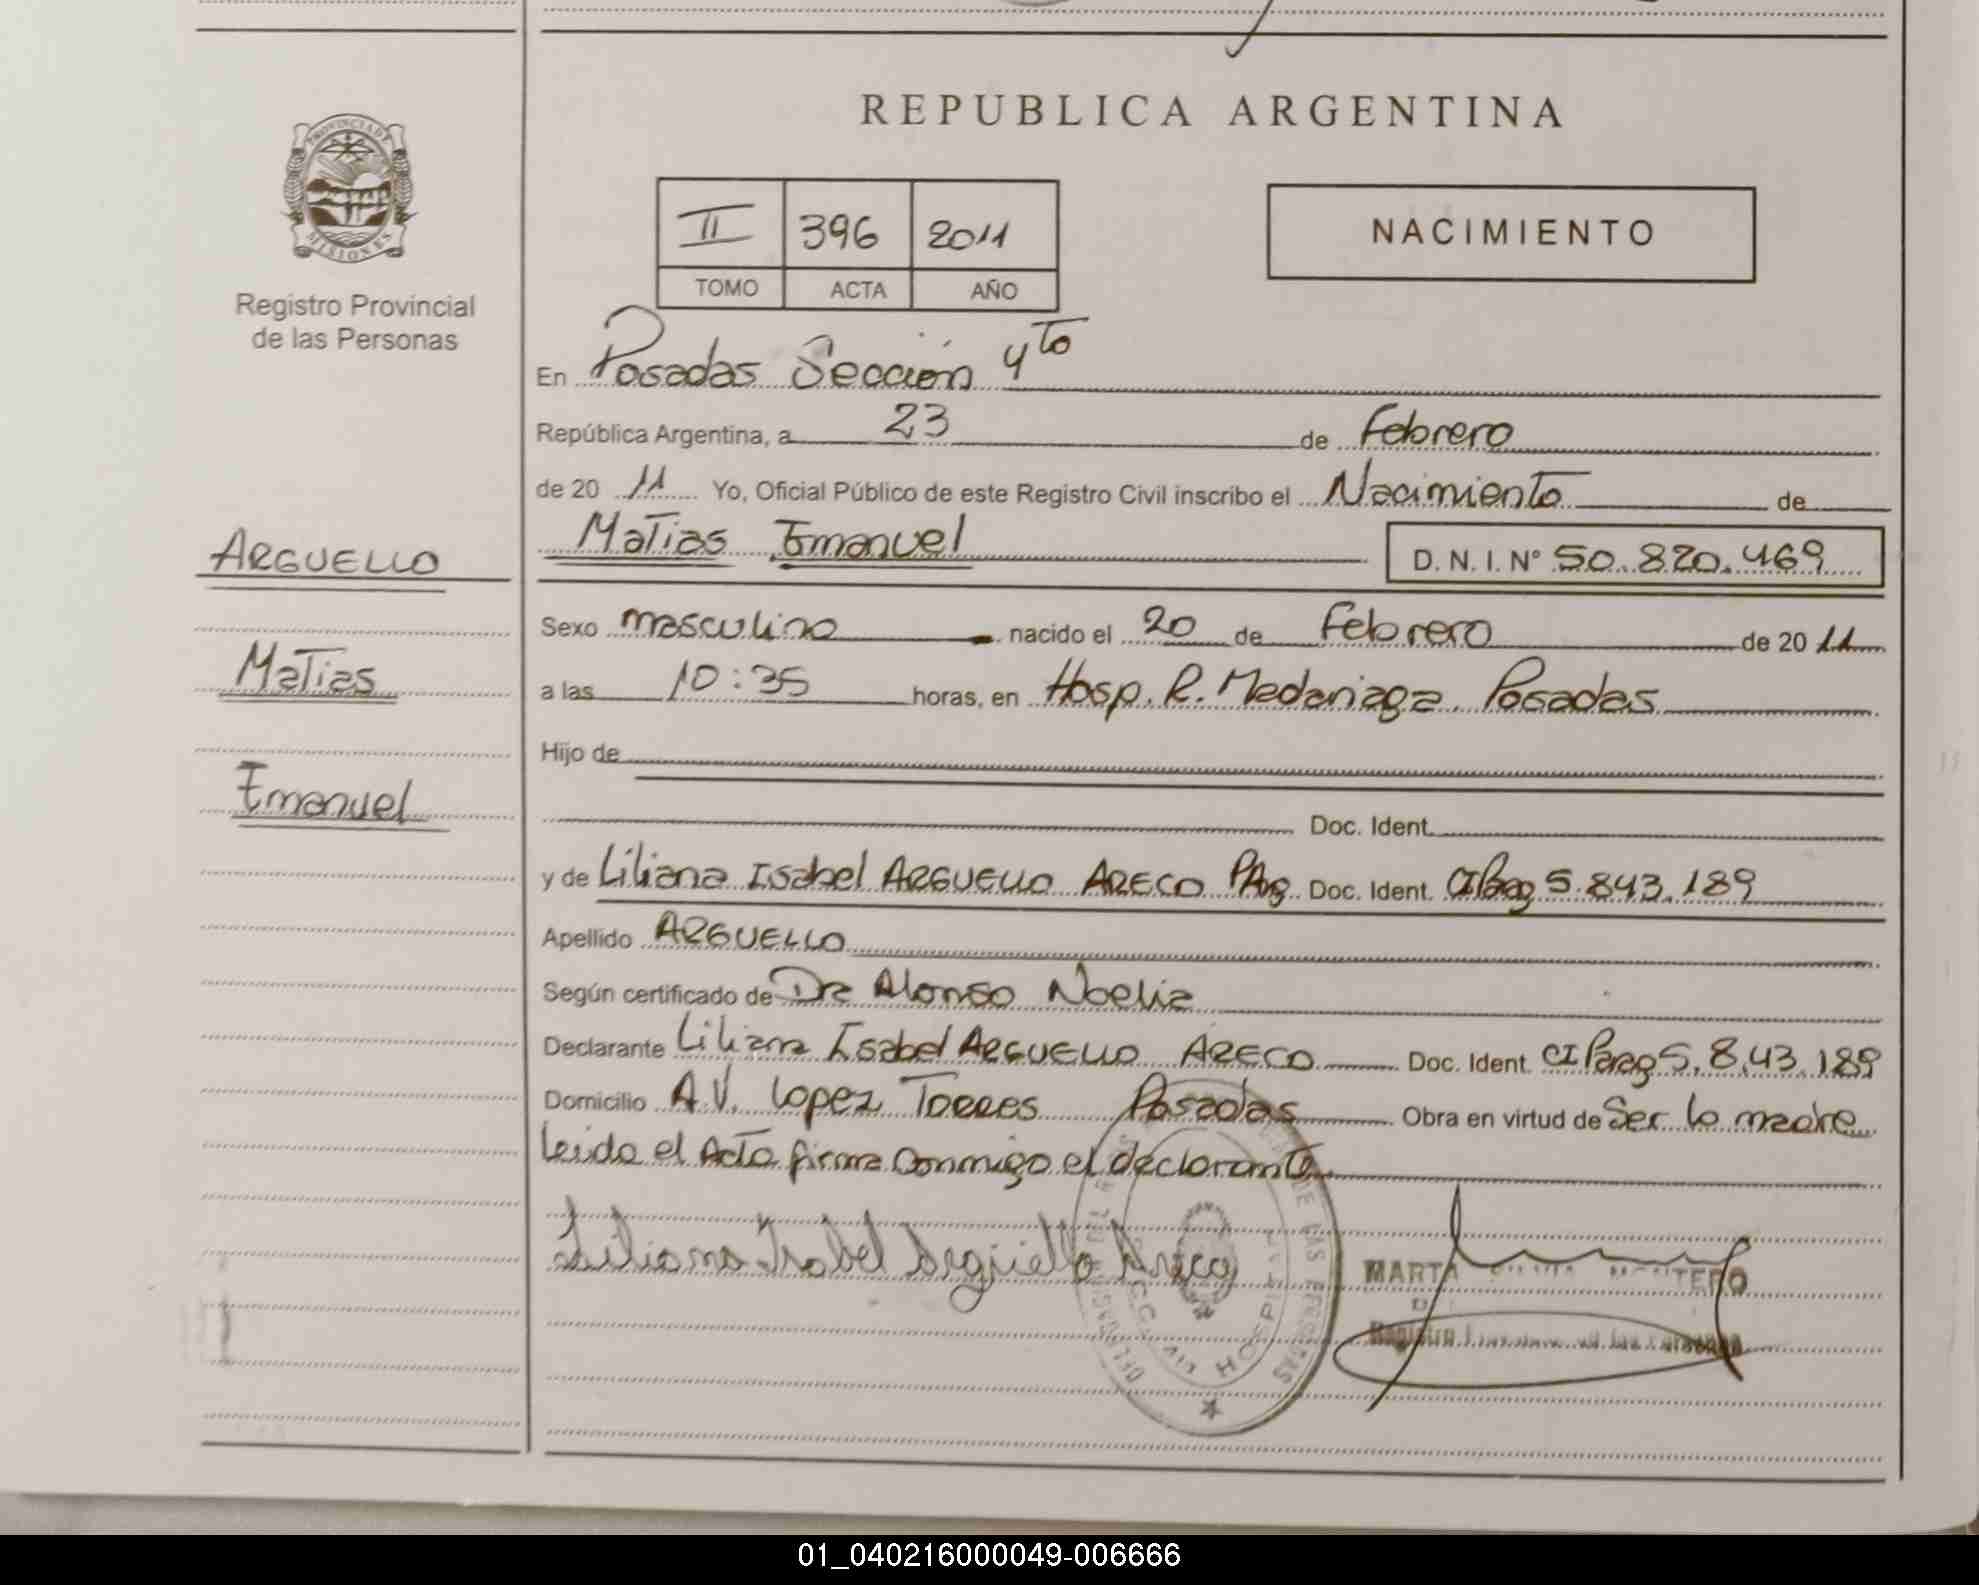 REPUBLICA ARGENTINA
PROVINCIA DE
MISIONES
Registro Provincial
de las Personas
II 396 2011
TOMO ACTA AÑO
NACIMIENTO
En Posadas Sección 4to
República Argentina, a 23 de Febrero
de 20 11 Yo, Oficial Público de este Registro Civil inscribo el Nacimiento de
Matias Emanuel D. N. I. N° 50.820.469
ARGUELLO
Matias
Emanuel
Sexo masculino nacido el 20 de Febrero de 20 11
a las 10:35 horas, en Hosp. R. Madariaga. Posadas
Hijo de
Doc. Ident.
y de Liliana Isabel ARGUELLO ARECO PAg Doc. Ident. CI Parg 5.843.189
Apellido ARGUELLO
Según certificado de Dra Alonso Noelia
Declarante Liliana Isabel ARGUELLO ARECO Doc. Ident. CI Parg 5.843.189
Domicilio AV. Lopez Torres Posadas Obra en virtud de Ser la madre
leida el Acta firma conmigo el declarante.
Liliana Isabel Arguello Areco
MARTA SILVIA MONTERO
Registro Provincial de las Personas
DE LAS PERSONAS
HOSPITAL
01_040216000049-006666